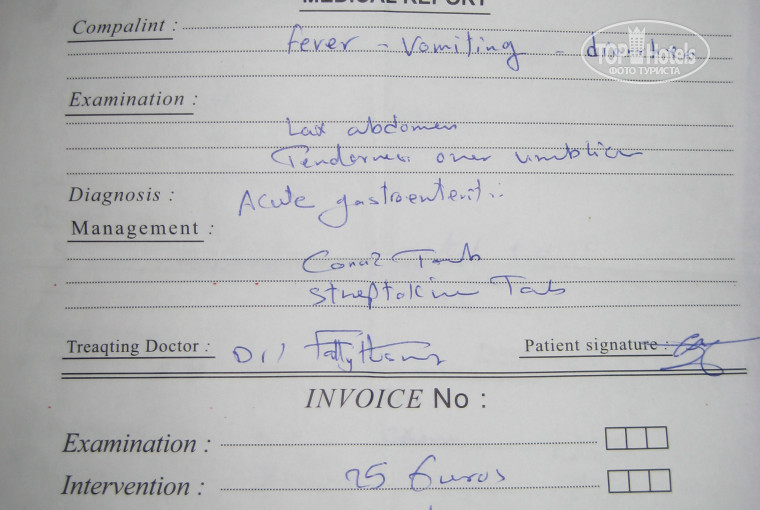 MEDICAL REPORT
Compalint :
fever - vomiting -
TOP Hotels
ФОТО ТУРИСТА
Examination :
Lax abdomen
Tenderness over umblicu
Diagnosis : Acute gastroenteritis
Management :
Tab
Streptokin Tab
Treaqting Doctor : Dr/ Patient signature :
INVOICE No :
Examination :
Intervention : 25 Euros